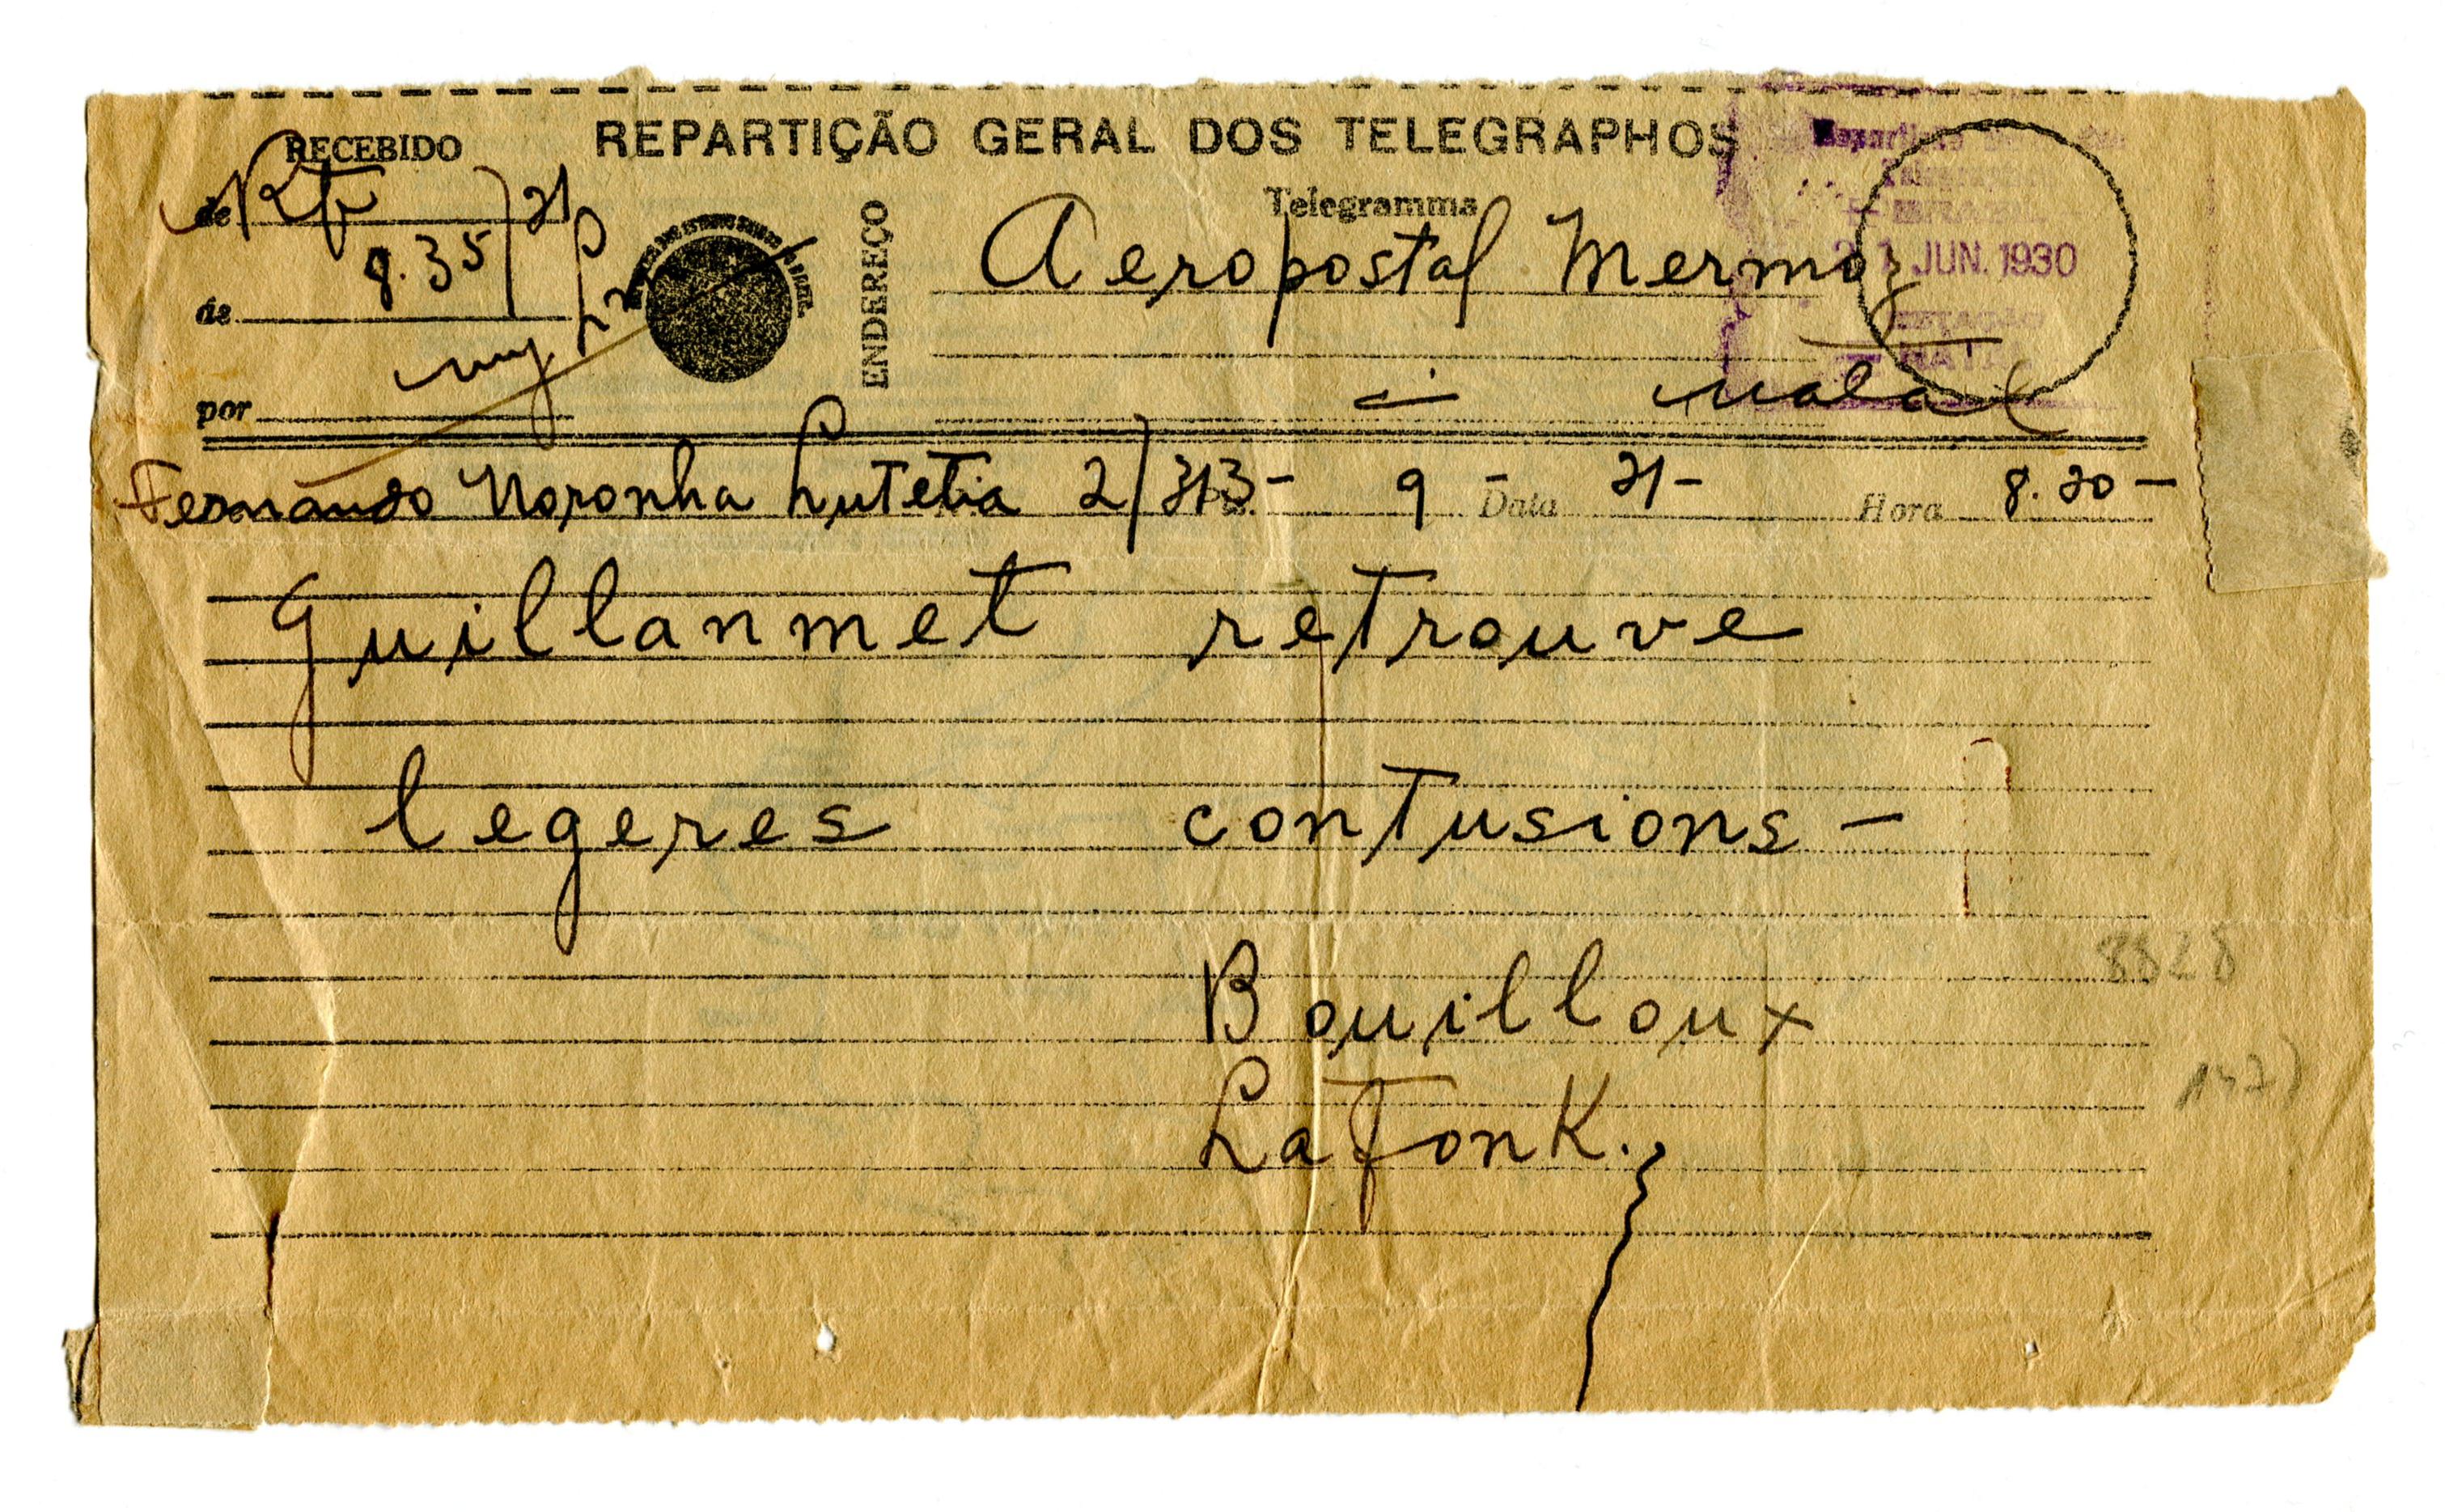 REPARTIÇÃO GERAL DOS TELEGRAPHOS
RECEBIDO
Telegramma
de 21
8.35
de
por
ENDEREÇO
Aeropostal Mermoz
Natal
21 JUN. 1930
ESTAÇÃO
Fernando Noronha Lutetia 2/313- 9 - Data 21- Hora 8.20-
Guillanmet retrouve
legeres contusions -
Bouilloux
Lafonk.
8528